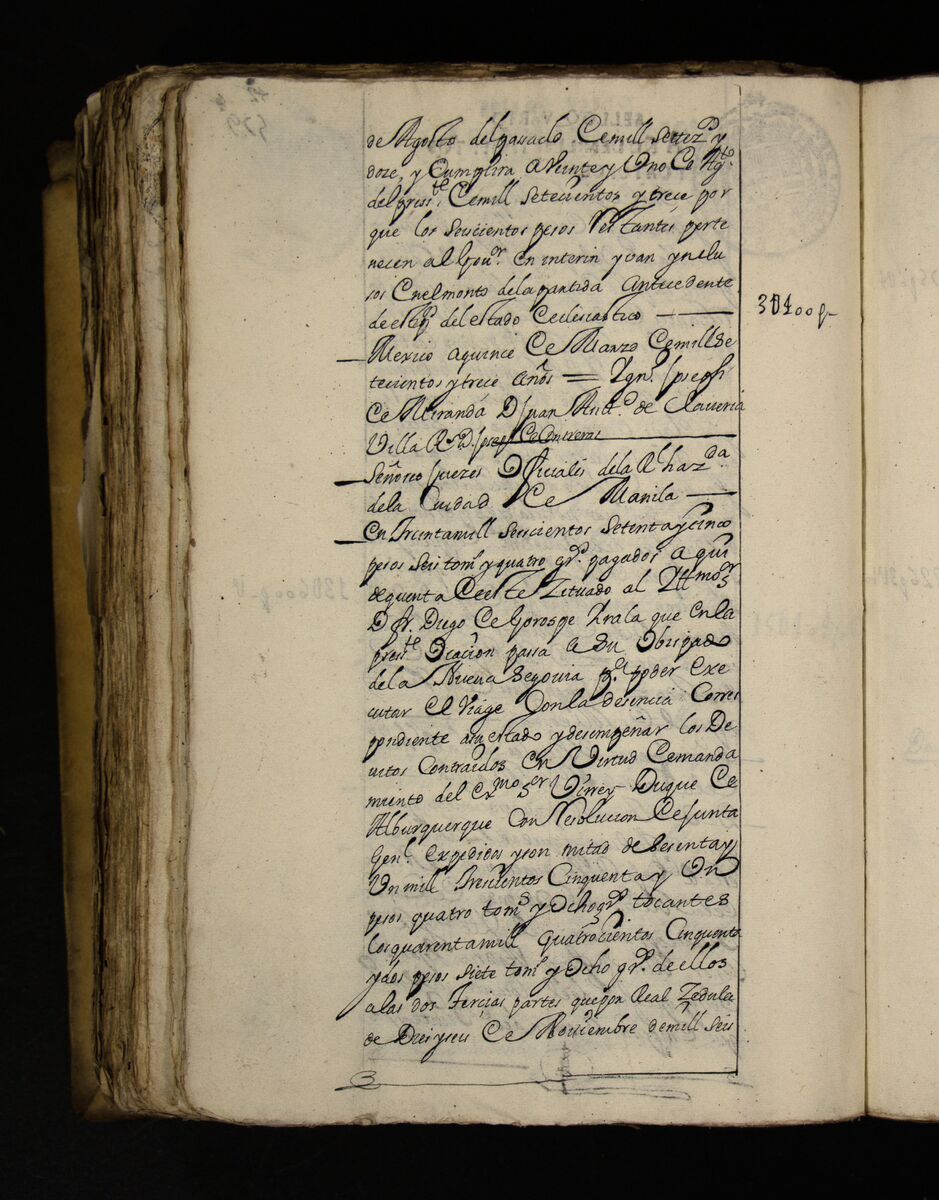 de Agosto del pasado Cemill Setez.^s y
doze, y Cumplira a Veinte y Uno Ce Ag.^to
del press.^te Cemill Setecientos y trece por
que los Seiscientos pesos Restantes perte
necen al Gou.^or en interin y van ynclu
sos Enelmonto dela partida Antecedente
del estado Eclesiastico
Mexico a quince Ce Marzo Cemill Se
tecientos y trece años = Ygn.^o Joseph
Ce Miranda D Juan Ant.^o de Claueria
Villa R^s D. Joseph Ce Contreras
Señores Juezes Oficiales dela R.^l haz.^da
dela Ciudad Ce Manila
En Treintamill Seiscientos Setentaycinco
pesos Seis tom.^s y quatro gr.^s pagados aqui
dequenta Ceeste Zituado al Ill^mo S^r
D Fr. Diego Ce Gorospe Yrala que en la
press^te Ocasion passa a su Obispado
dela Nueua Segouia p.^a poder Exe
cutar el Viage Con la desencia Corres
pondiente asuestado y desempeñar los De
uitos Contraidos en Virtud Cemanda
miento del Ex^mo S^or Virrey Duque Ce
Alburquerque Con Resolucion CeJunta
Gen.^l expedidos y son mitad de Sesentay
Un mill Trescientos Cinquenta y Un
pesos quatro tom.^s y Ocho gr.^s tocantes
los quarentamill quatrocientos Cinquenta
ydos pesos siete tom.^s y Ocho gr.^s de ellos
alas dos Tercias partes quepor Real Zedula
de Diez y seis Ce Nouiembre demill Seis